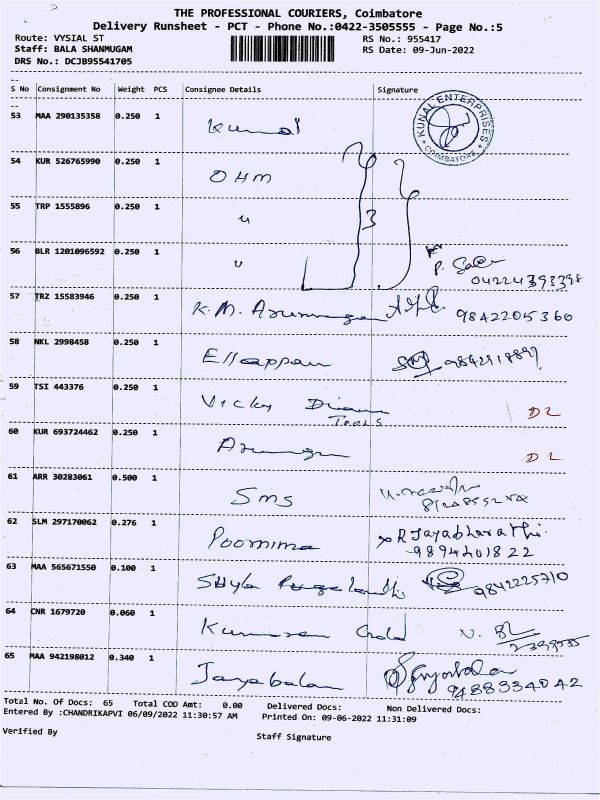 THE PROFESSIONAL COURIERS, Coimbatore
Delivery Runsheet - PCT - Phone No.:0422-3505555 - Page No.:5
Route: VYSIAL ST RS No.: 955417
Staff: BALA SHANMUGAM RS Date: 09-Jun-2022
DRS No.: DCJB95541705
S No Consignment No Weight PCS Consignee Details Signature
53 MAA 290135358 0.250 1 Kunal
KUNAL ENTERPRISES
COIMBATORE
54 KUR 526765990 0.250 1 OHM
55 TRP 1555896 0.250 1 " 3
56 BLR 1201096592 0.250 1 "
P.
57 TRZ 15583946 0.250 1 K.M. Arumugam 9842205360
58 NKL 2998458 0.250 1 Ellappan
59 TSI 443376 0.250 1 Vicky D2
Tools
60 KUR 693724462 0.250 1 D2
61 ARR 30283061 0.500 1 Sms
62 SLM 297170062 0.276 1 Poornima R Jayabharathi
9894201822
63 MAA 565671550 0.100 1 9842225710
64 CNR 1679720 0.060 1 Kumaran Gold
65 MAA 942198012 0.340 1 Jayabalan
9488334042
Total No. Of Docs: 65 Total COD Amt: 0.00 Delivered Docs: Non Delivered Docs:
Entered By :CHANDRIKAPVI 06/09/2022 11:30:57 AM Printed On: 09-06-2022 11:31:09
Verified By Staff Signature